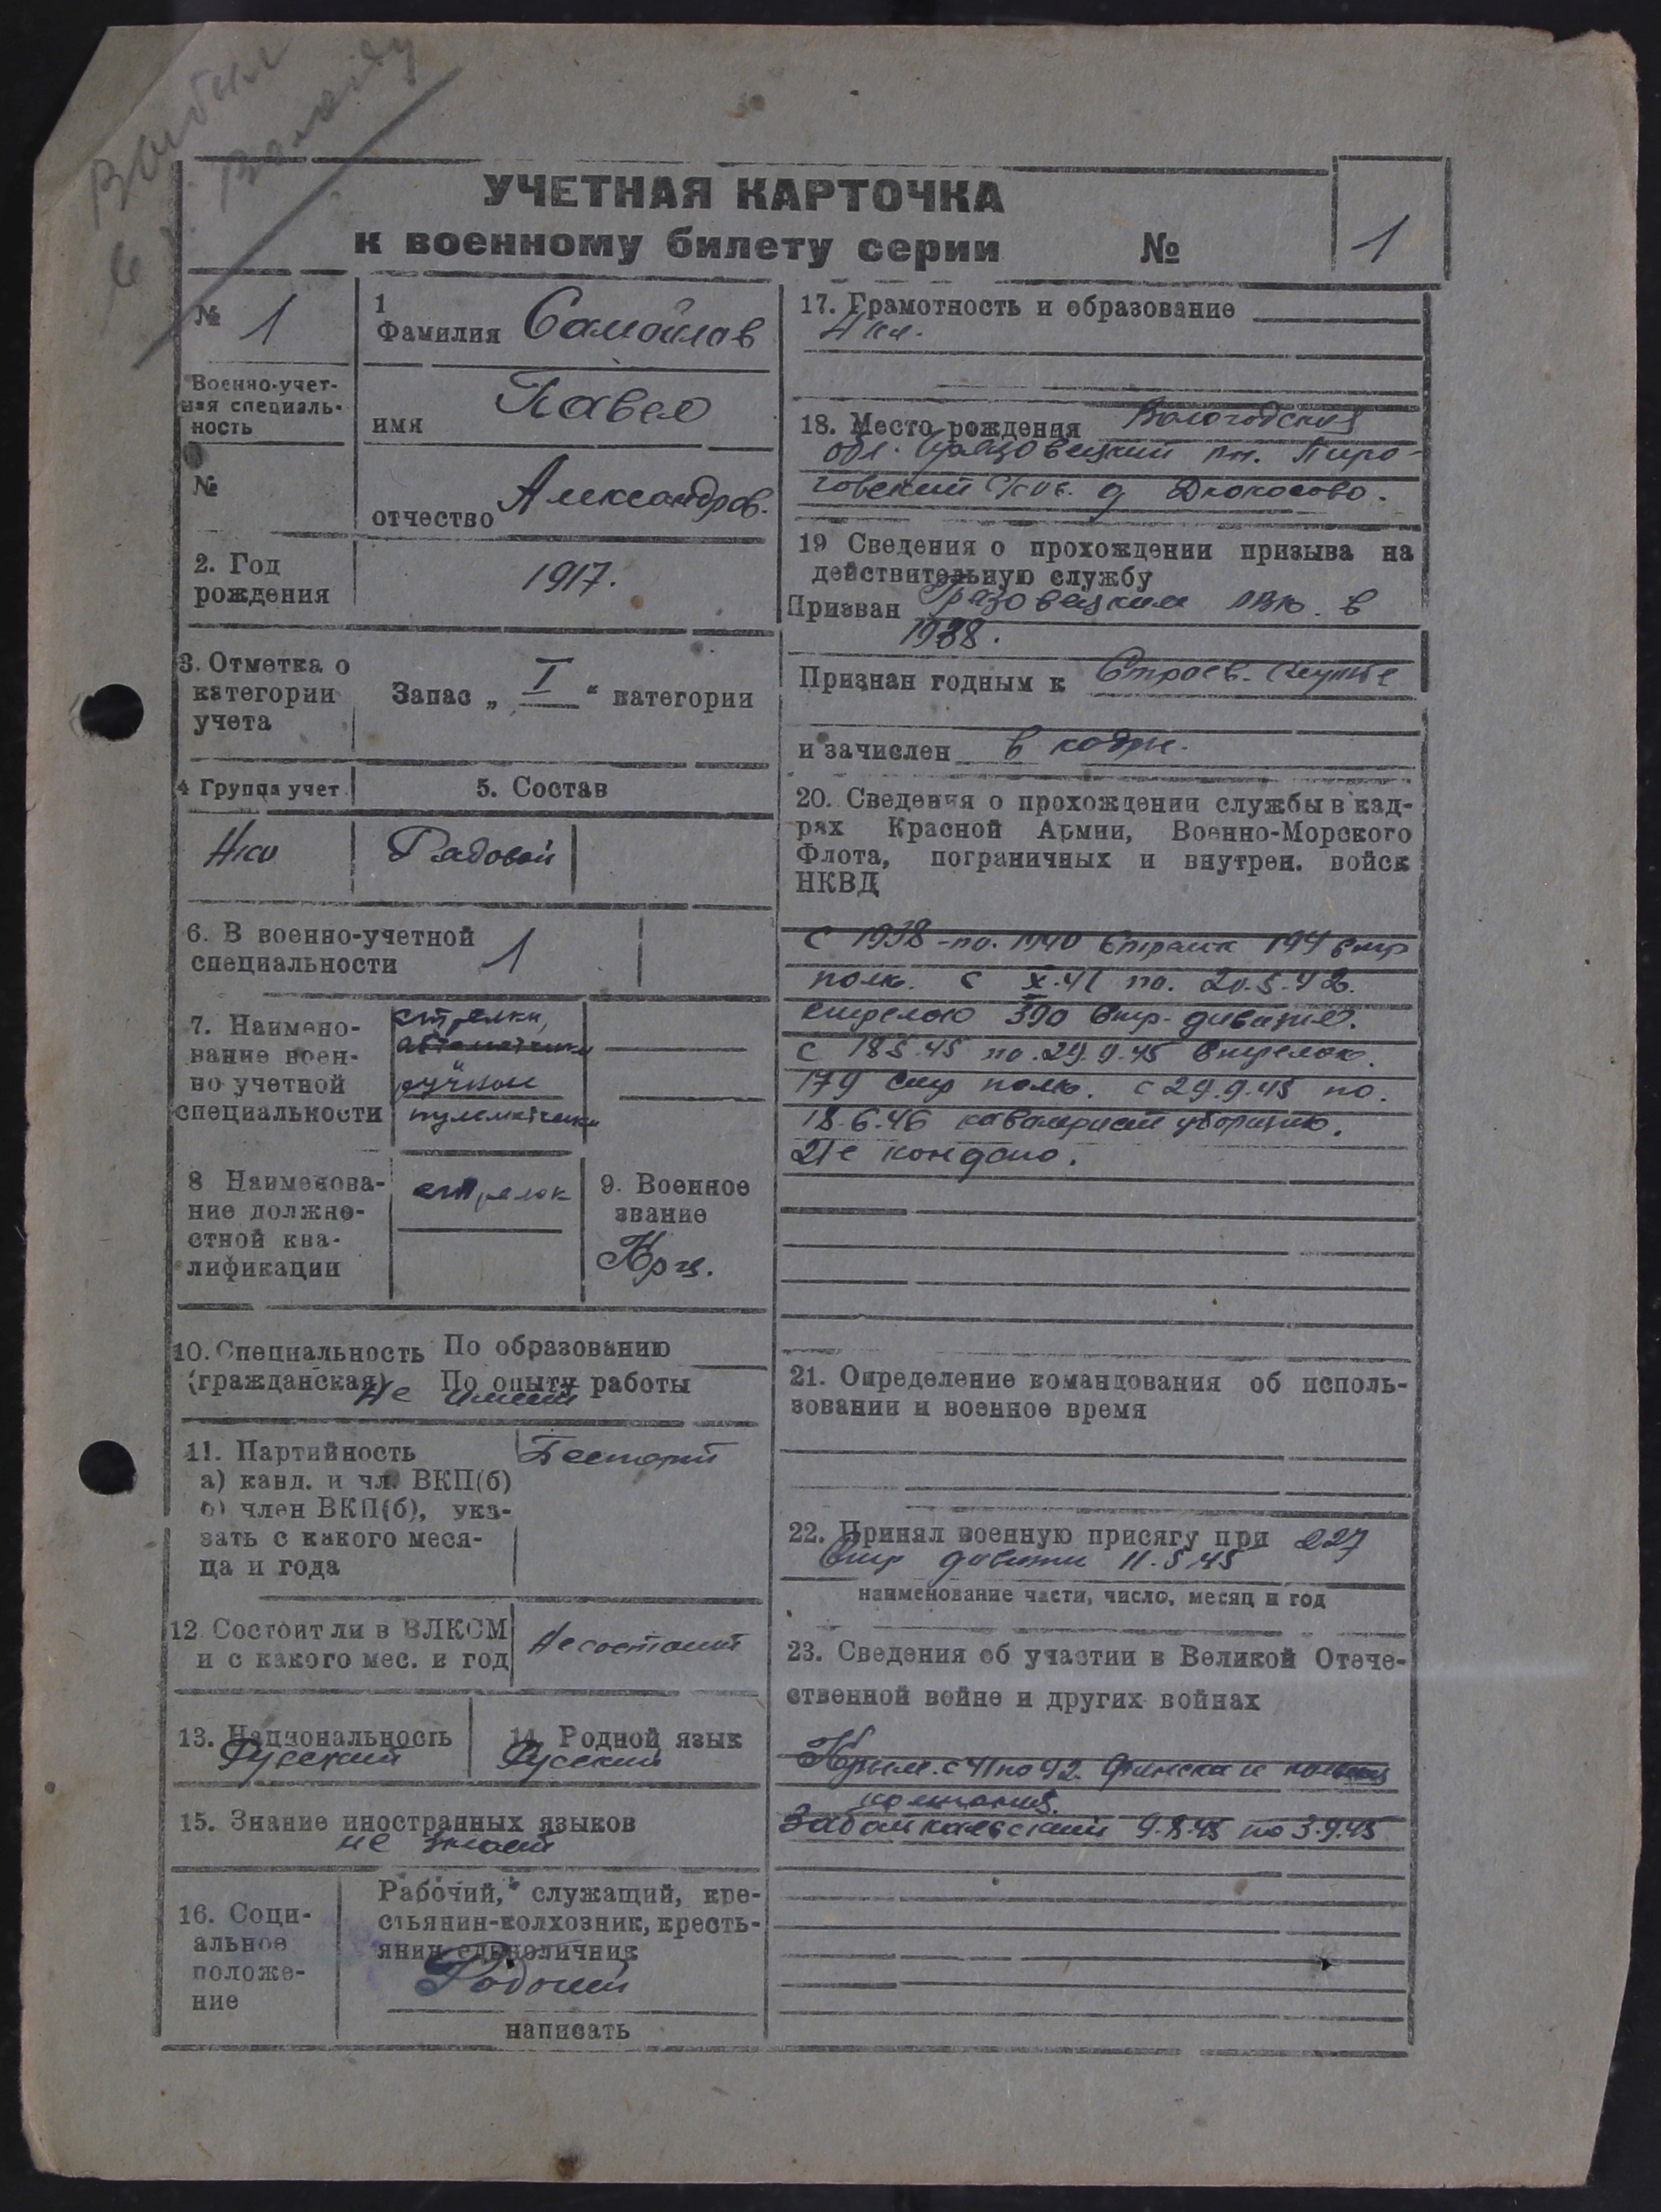 Выбыл
в г. Вологду
УЧЕТНАЯ КАРТОЧКА
к военному билету серии №
1
№ 1
Военно-учет-
ная специаль-
ность
№
1
Фамилия Самойлов
имя Павел
отчество Александров.
2. Год
рождения
1917.
3. Отметка о
категории
учета
Запас „ I “ категории
4 Группа учет.
5. Состав
Рядовой
6. В военно-учетной
специальности 1
7. Наимено-
вание воен-
но-учетной
специальности
стрелки,
автоматчики
ручные
пулеметчики
8 Наименова-
ние должно-
стной ква-
лификации
стрелок
9. Военное
звание
Кр-ц.
10. Специальность По образованию
(гражданская) По опыту работы
Не имеет
11. Партийность
а) канд. и чл. ВКП(б)
б) член ВКП(б), ука-
зать с какого меся-
ца и года
Беспарт
12 Состоит ли в ВЛКСМ
и с какого мес. и год
Не состоит
13. Национальность
Русский
14. Родной язык
Русский
15. Знание иностранных языков
не знает
16. Соци-
альное
положе-
ние
Рабочий, служащий, кре-
стьянин-колхозник, кресть-
янин единоличник
Рабочий
написать
17. Грамотность и образование
4 кл.
18. Место рождения Вологодская
обл. Грязовецкий рн. Пиро-
говский с/сов. д
19 Сведения о прохождении призыва на
действительную службу
Призван Грязовецким РВК. в
1938.
Признан годным к Строев. службе
и зачислен в кадры.
20. Сведения о прохождении службы в кад-
рях Красной Армии, Военно-Морского
Флота, пограничных и внутрен. войск
НКВД
С 1938 - по. 1940 194 стр
полк. с X.41 по. 20.5.42.
стрелок 390 Стр. дивизия.
с 18 5.45 по. 29.9.45 Стрелок.
179 стр полк. с 29.9.45 по.
18.6.46 кавалерист
21. Определение командования об исполь-
зовании и военное время
22. Принял военную присягу при 227
Стр дивизии 11.5.45
наименование части, число, месяц и год
23. Сведения об участии в Великой Отече-
ственной войне и других войнах
Крым. с 41 по 42. Финская
компания.
Забайкальский 9.8.45 по 3.9.45